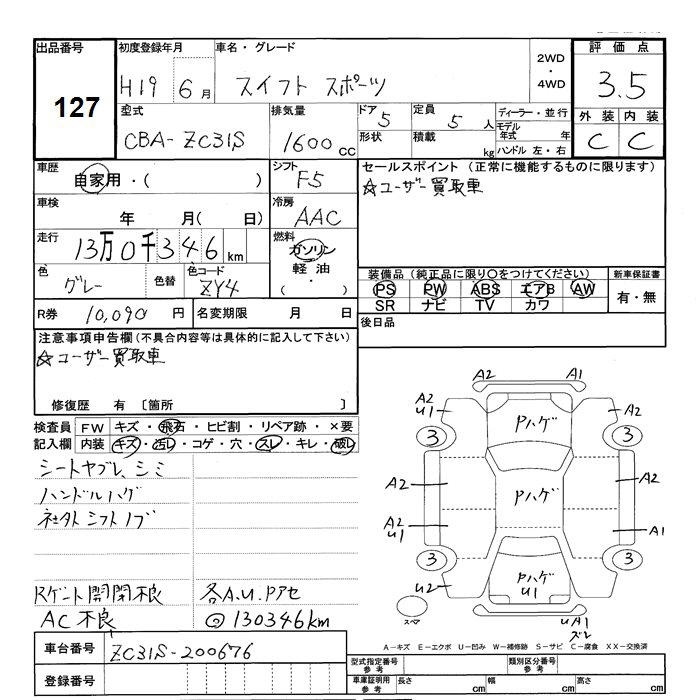 出品番号
127
初度登録年月
H19 6月
車名・グレード
スイフト スポーツ
2WD
・
4WD
評価点
3.5
外装 内装
C C
型式
CBA-ZC31S
排気量
1600cc
ドア
5
形状
定員
5人
積載
kg
ディーラー・並行
モデル年式 年
ハンドル 左・右
車歴
自家用・( )
シフト
F5
セールスポイント (正常に機能するものに限ります)
☆ユーザー買取車
車検
年 月( 日)
冷房
AAC
走行
13万0千346km
燃料
ガソリン
軽油
( ・ )
色
グレー
色替
色コード
ZY4
装備品 (純正品に限り〇をつけてください)
PS PW ABS エアB AW
SR ナビ TV カワ
新車保証書
有・無
R券 10,090円
名変期限 月 日
後日品
注意事項申告欄(不具合内容等は具体的に記入して下さい)
☆ユーザー買取車
修復歴 有 〔箇所 〕
検査員記入欄
FW キズ・飛石・ヒビ割・リペア跡・×要
内装 キズ・汚レ・コゲ・穴・スレ・キレ・破レ
シートヤブレ、シミ
ハンドルハゲ
社外シフトノブ
Rゲート開閉不良
AC不良
各A.U.Pアセ
@130346km
A2 A1
A2
U1
Pハゲ
A2
3 3
A2
Pハゲ
A2
A2
U1
A1
3 3
U2
Pハゲ
U1
A2
スペア
UA1
ズレ
A-キズ E-エクボ U-凹み W-補修跡 S-サビ C-腐食 XX-交換済
車台番号
ZC31S-200676
登録番号
型式指定番号
参考
類別区分番号
参考
車庫証明用
参考
長さ cm
幅 cm
高さ cm